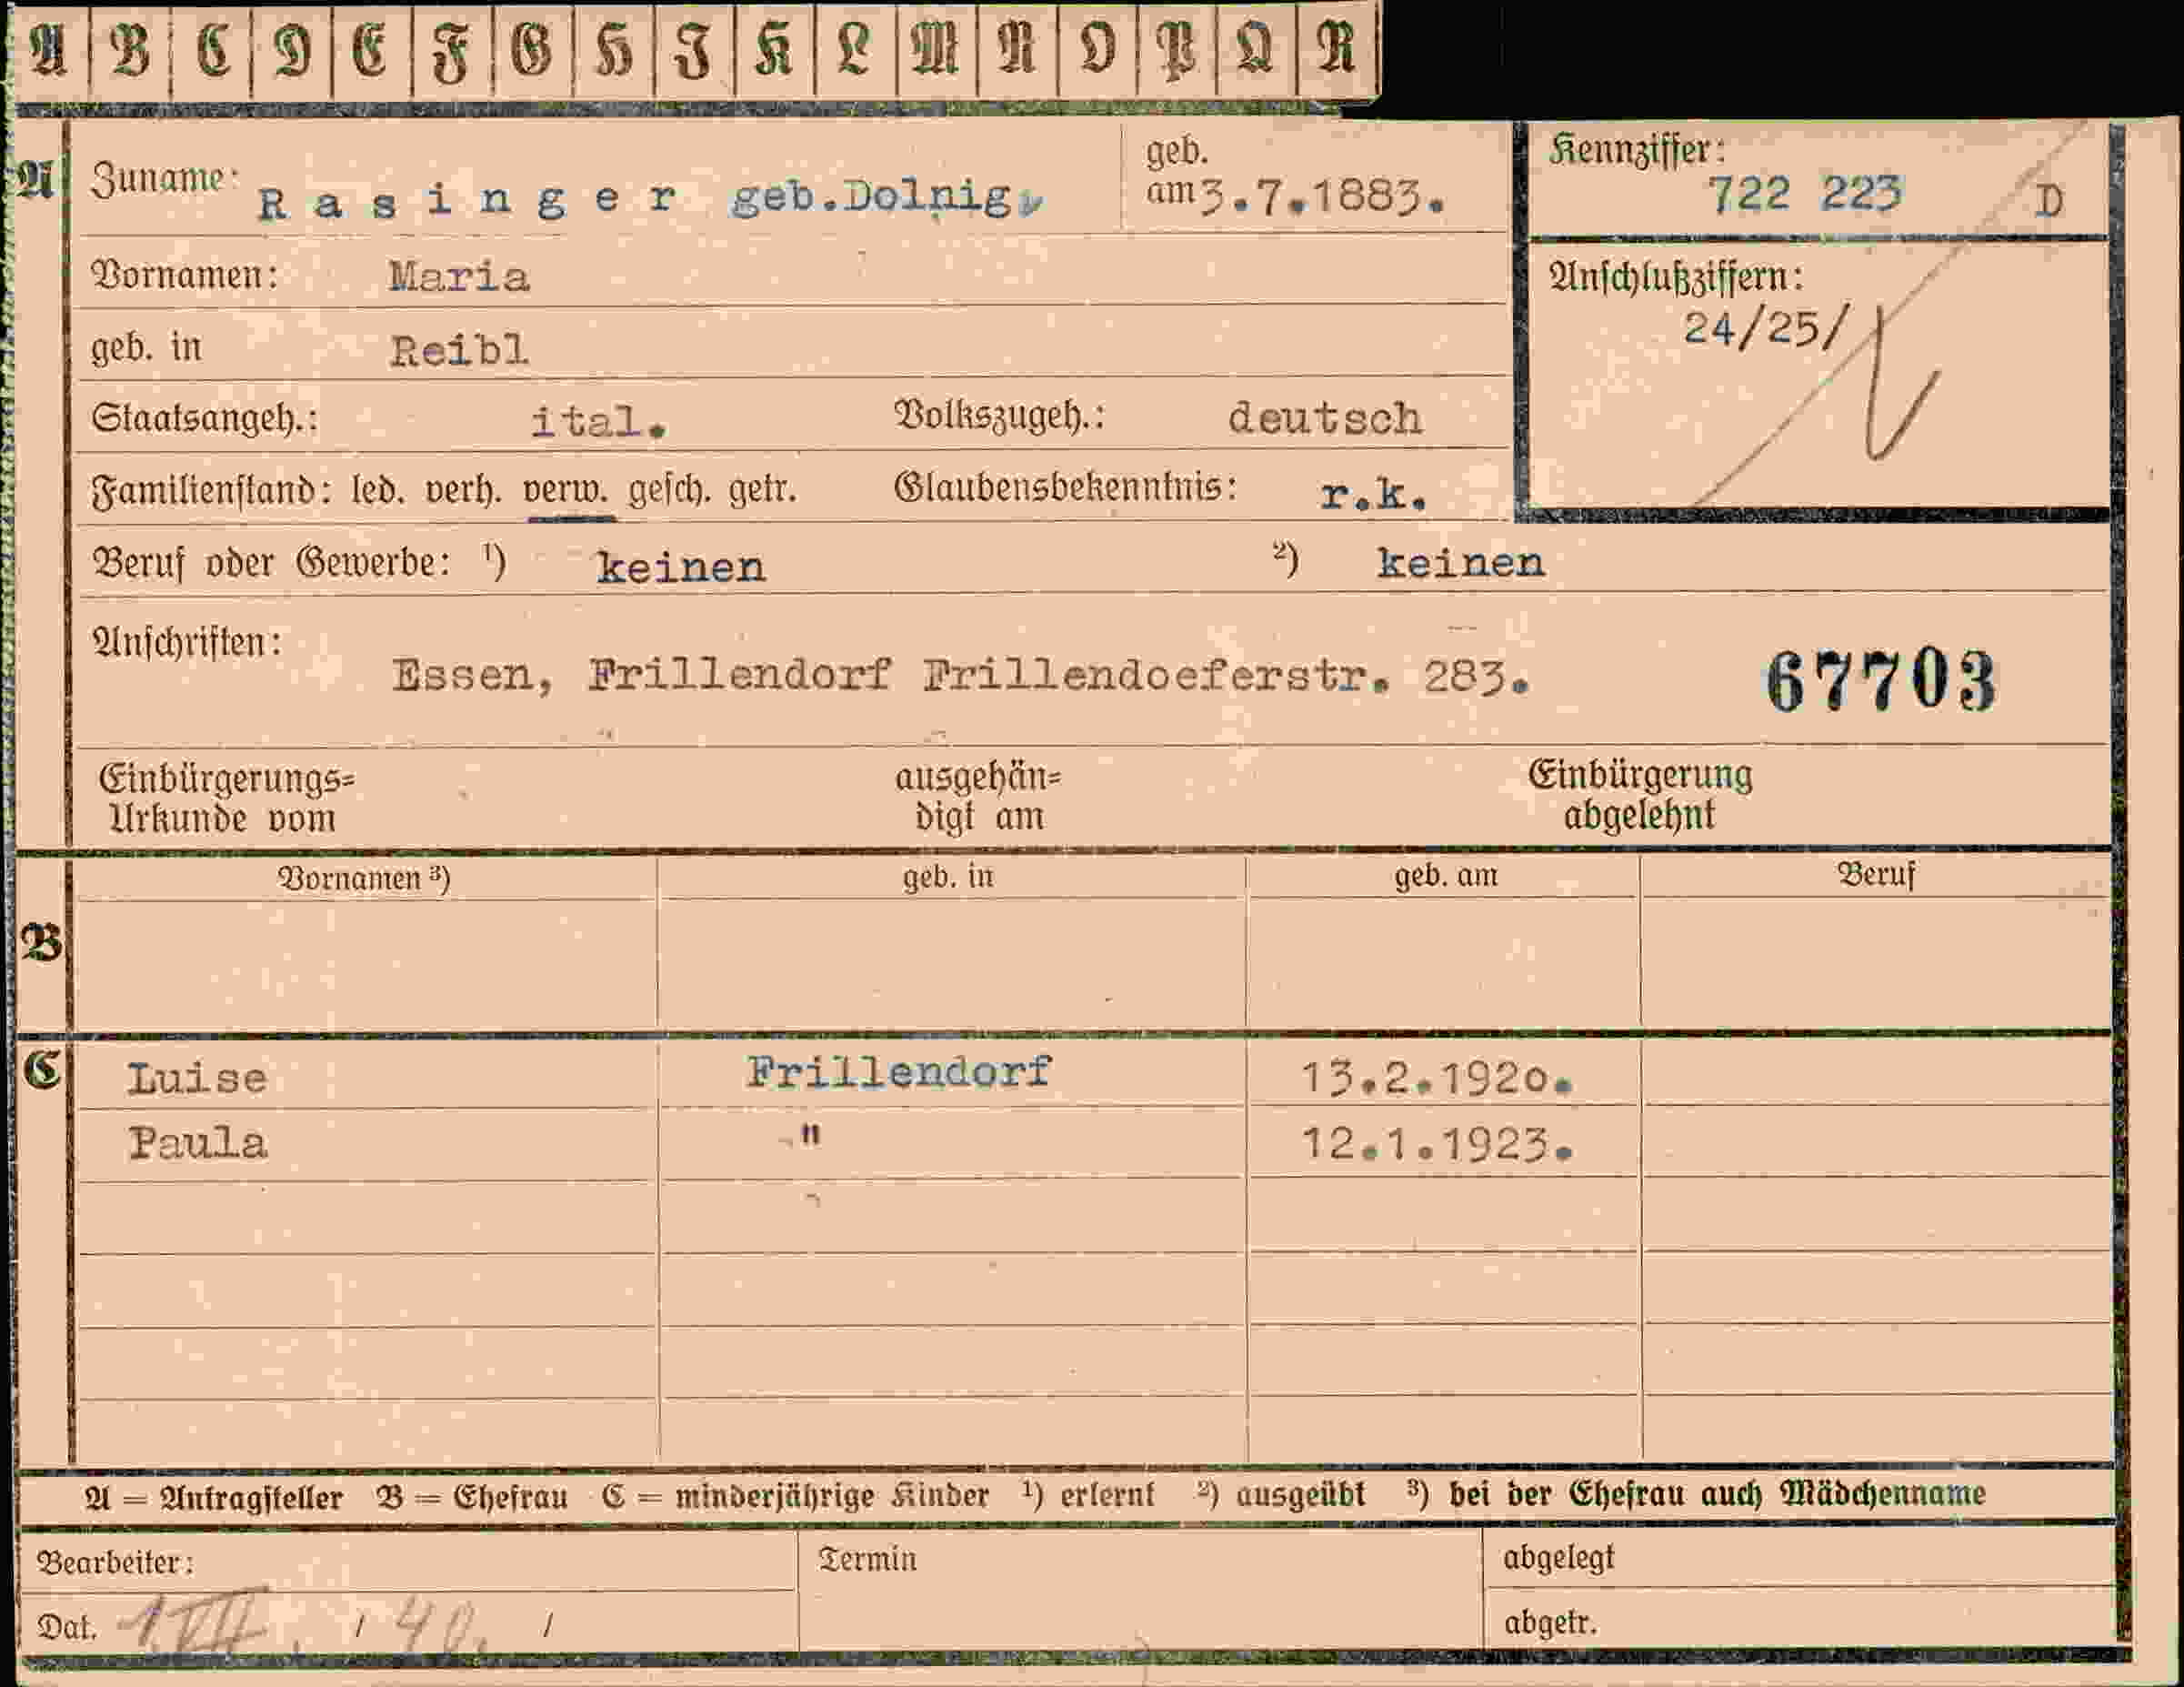 A B C D E F G H I K L M N O P Q R
A Zuname: Rasinger geb.Dolnig, geb. am 3.7.1883. Kennziffer: 722 223 D
Vornamen: Maria
Anschlußziffern: 24/25/
geb. in Reibl
Staatsangeh.: ital. Volkszugeh.: deutsch
Familienstand: led. verh. verw. gesch. getr. Glaubensbekenntnis: r.k.
Beruf oder Gewerbe: 1) keinen 2) keinen
Anschriften: Essen, Frillendorf Frillendoeferstr. 283. 67703
Einbürgerungs= ausgehän= Einbürgerung
Urkunde vom digt am abgelehnt
Vornamen 3) geb. in geb. am Beruf
B
C Luise Frillendorf 13.2.1920.
Paula " 12.1.1923.
A = Antragsteller B = Ehefrau C = minderjährige Kinder 1) erlernt 2) ausgeübt 3) bei der Ehefrau auch Mädchenname
Bearbeiter: Termin abgelegt
Dat. 1.VII. / 40. / abgetr.